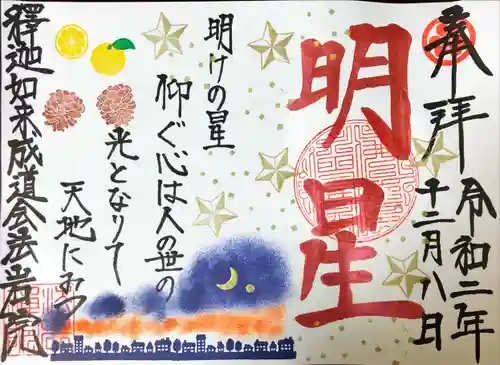 奉拝
令和二年
十二月八日
明星
明けの星
仰ぐ心は人の世の
光となりて
天地にみつ
釋迦如来成道会法岩院